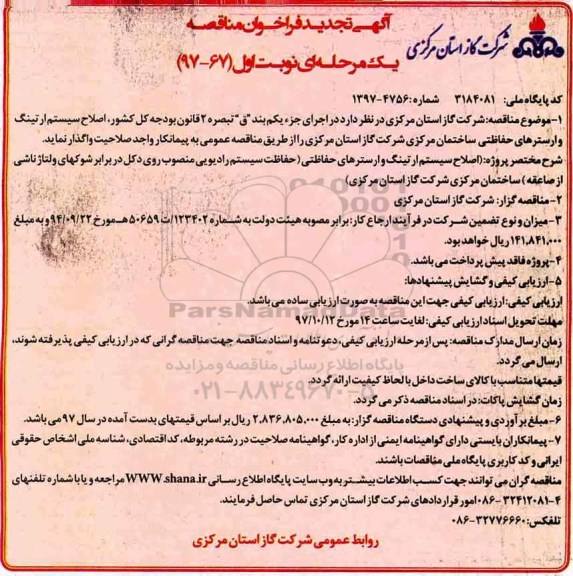 آگهی تجدید فراخوان مناقصه
یک مرحله‌ای نوبت اول (۶۷-۹۷)
شرکت گاز استان مرکزی
کد پایگاه ملی: ۳۱۸۴۰۸۱ شماره: ۱۳۹۷-۴۷۵۶
۱-موضوع مناقصه: شرکت گاز استان مرکزی در نظر دارد در اجرای جزء یکم بند "ق" تبصره ۲ قانون بودجه کل کشور، اصلاح سیستم ارتینگ
و ارسترهای حفاظتی ساختمان مرکزی شرکت گاز استان مرکزی را از طریق مناقصه عمومی به پیمانکار واجد صلاحیت واگذار نماید.
شرح مختصر پروژه: (اصلاح سیستم ارتینگ و ارسترهای حفاظتی (حفاظت سیستم رادیویی منصوب روی دکل در برابر شوکهای ولتاژ ناشی
از صاعقه) ساختمان مرکزی شرکت گاز استان مرکزی)
۲-مناقصه گزار: شرکت گاز استان مرکزی
۳-میزان و نوع تضمین شرکت در فرآیند ارجاع کار: برابر مصوبه هیئت دولت به شماره ۱۲۳۴۰۲/ت ۵۰۶۵۹ هـ مورخ ۹۴/۰۹/۲۲ و به مبلغ
۱۴۱,۸۴۱,۰۰۰ ریال خواهد بود.
۴-پروژه فاقد پیش پرداخت می باشد.
۵-ارزیابی کیفی و گشایش پیشنهادها:
ارزیابی کیفی: ارزیابی کیفی جهت این مناقصه به صورت ارزیابی ساده می باشد.
مهلت تحویل اسناد ارزیابی کیفی: لغایت ساعت ۱۴ مورخ ۹۷/۱۰/۱۲
زمان ارسال مدارک مناقصه: پس از مرحله ارزیابی کیفی، دعوتنامه و اسناد مناقصه جهت مناقصه گرانی که در ارزیابی کیفی پذیرفته شوند،
ارسال می گردد.
قیمتها متناسب با کالای ساخت داخل با لحاظ کیفیت ارائه گردد.
زمان گشایش پاکات: در اسناد مناقصه ذکر می گردد.
۶-مبلغ برآوردی و پیشنهادی دستگاه مناقصه گزار: به مبلغ ۲,۸۳۶,۸۰۵,۰۰۰ ریال بر اساس قیمتهای بدست آمده در سال ۹۷ می باشد.
۷-پیمانکاران بایستی دارای گواهینامه ایمنی از اداره کار، گواهینامه صلاحیت در رشته مربوطه، کد اقتصادی، شناسه ملی اشخاص حقوقی
ایرانی و کد کاربری پایگاه ملی مناقصات باشند.
مناقصه گران می توانند جهت کسب اطلاعات بیشتر به وب سایت پایگاه اطلاع رسانی WWW.shana.ir مراجعه و یا با شماره تلفنهای
۴-۳۲۴۱۲۰۸۱-۰۸۶ امور قراردادهای شرکت گاز استان مرکزی تماس حاصل فرمایند.
تلفکس: ۳۲۷۷۶۶۶۰-۰۸۶
روابط عمومی شرکت گاز استان مرکزی
ParsNamadData
پایگاه اطلاع رسانی مناقصه و مزایده
۰۲۱-۸۸۳۴۹۶۷۰-۵